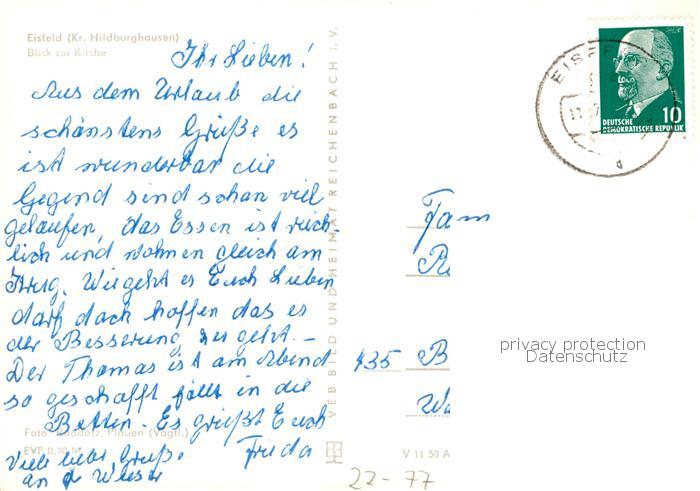 Eisfeld (Kr. Hildburghausen)
Blick zur Kirche
Ihr Lieben!
Aus dem Urlaub die
schönstens Grüße es
ist wunderbar die
Gegend sind schon viel
gelaufen, das Essen ist reich-
lich und wohnen gleich am
Wie geht es Euch Lieben
darf doch hoffen das es
der Besserung zu geht. –
Der Thomas ist am Abend
so geschafft fällt in die
Betten. Es grüßt Euch
Frieda
Viele liebe Grüße
an
Foto: Raddatz, Plauen (Vogtl.)
EVP 0,20 M
VEB BILD UND HEIMAT REICHENBACH I. V.
V 11 50 A
DEUTSCHE
DEMOKRATISCHE REPUBLIK
10
EISF
11
d
Fam
435 B
privacy protection
Datenschutz
22-77